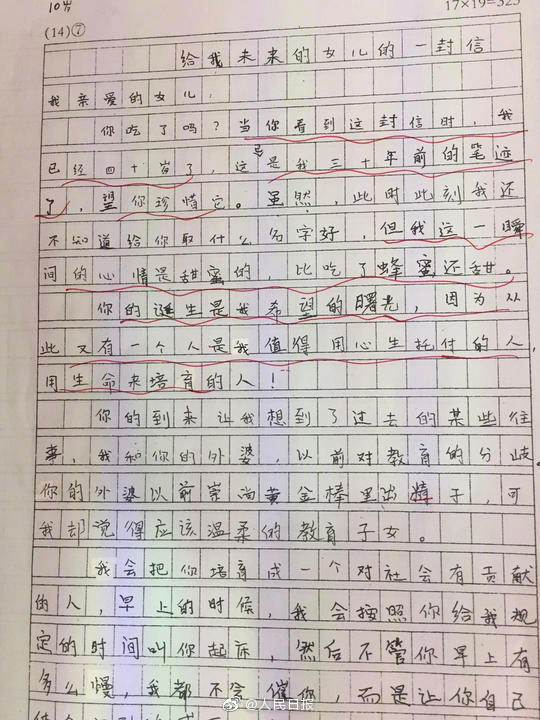 10岁
17×19=323
(14)⑦
给我未来的女儿的一封信
我亲爱的女儿:
你吃了吗?当你看到这封信时,我
已经四十岁了,这是我三十年前的笔迹
了,望你珍惜它。虽然,此时此刻我还
不知道给你取什么名字好,但我这一瞬
间的心情是甜蜜的,比吃了蜂蜜还甜。
你的诞生是我希望的曙光,因为从
此又有一个人是我值得用心生托付的人,
用生命来培育的人!
你的到来让我想到了过去的某些往
事,我和你的外婆,以前对教育的分歧。
你的外婆以前崇尚黄金棒里出精子,可
我却觉得应该温柔的教育子女。
我会把你培育成一个对社会有贡献
的人,早上的时候,我会按照你给我规
定的时间叫你起床,然后不管你早上有
多么慢,我都不会催你,而是让你自己
@人民日报